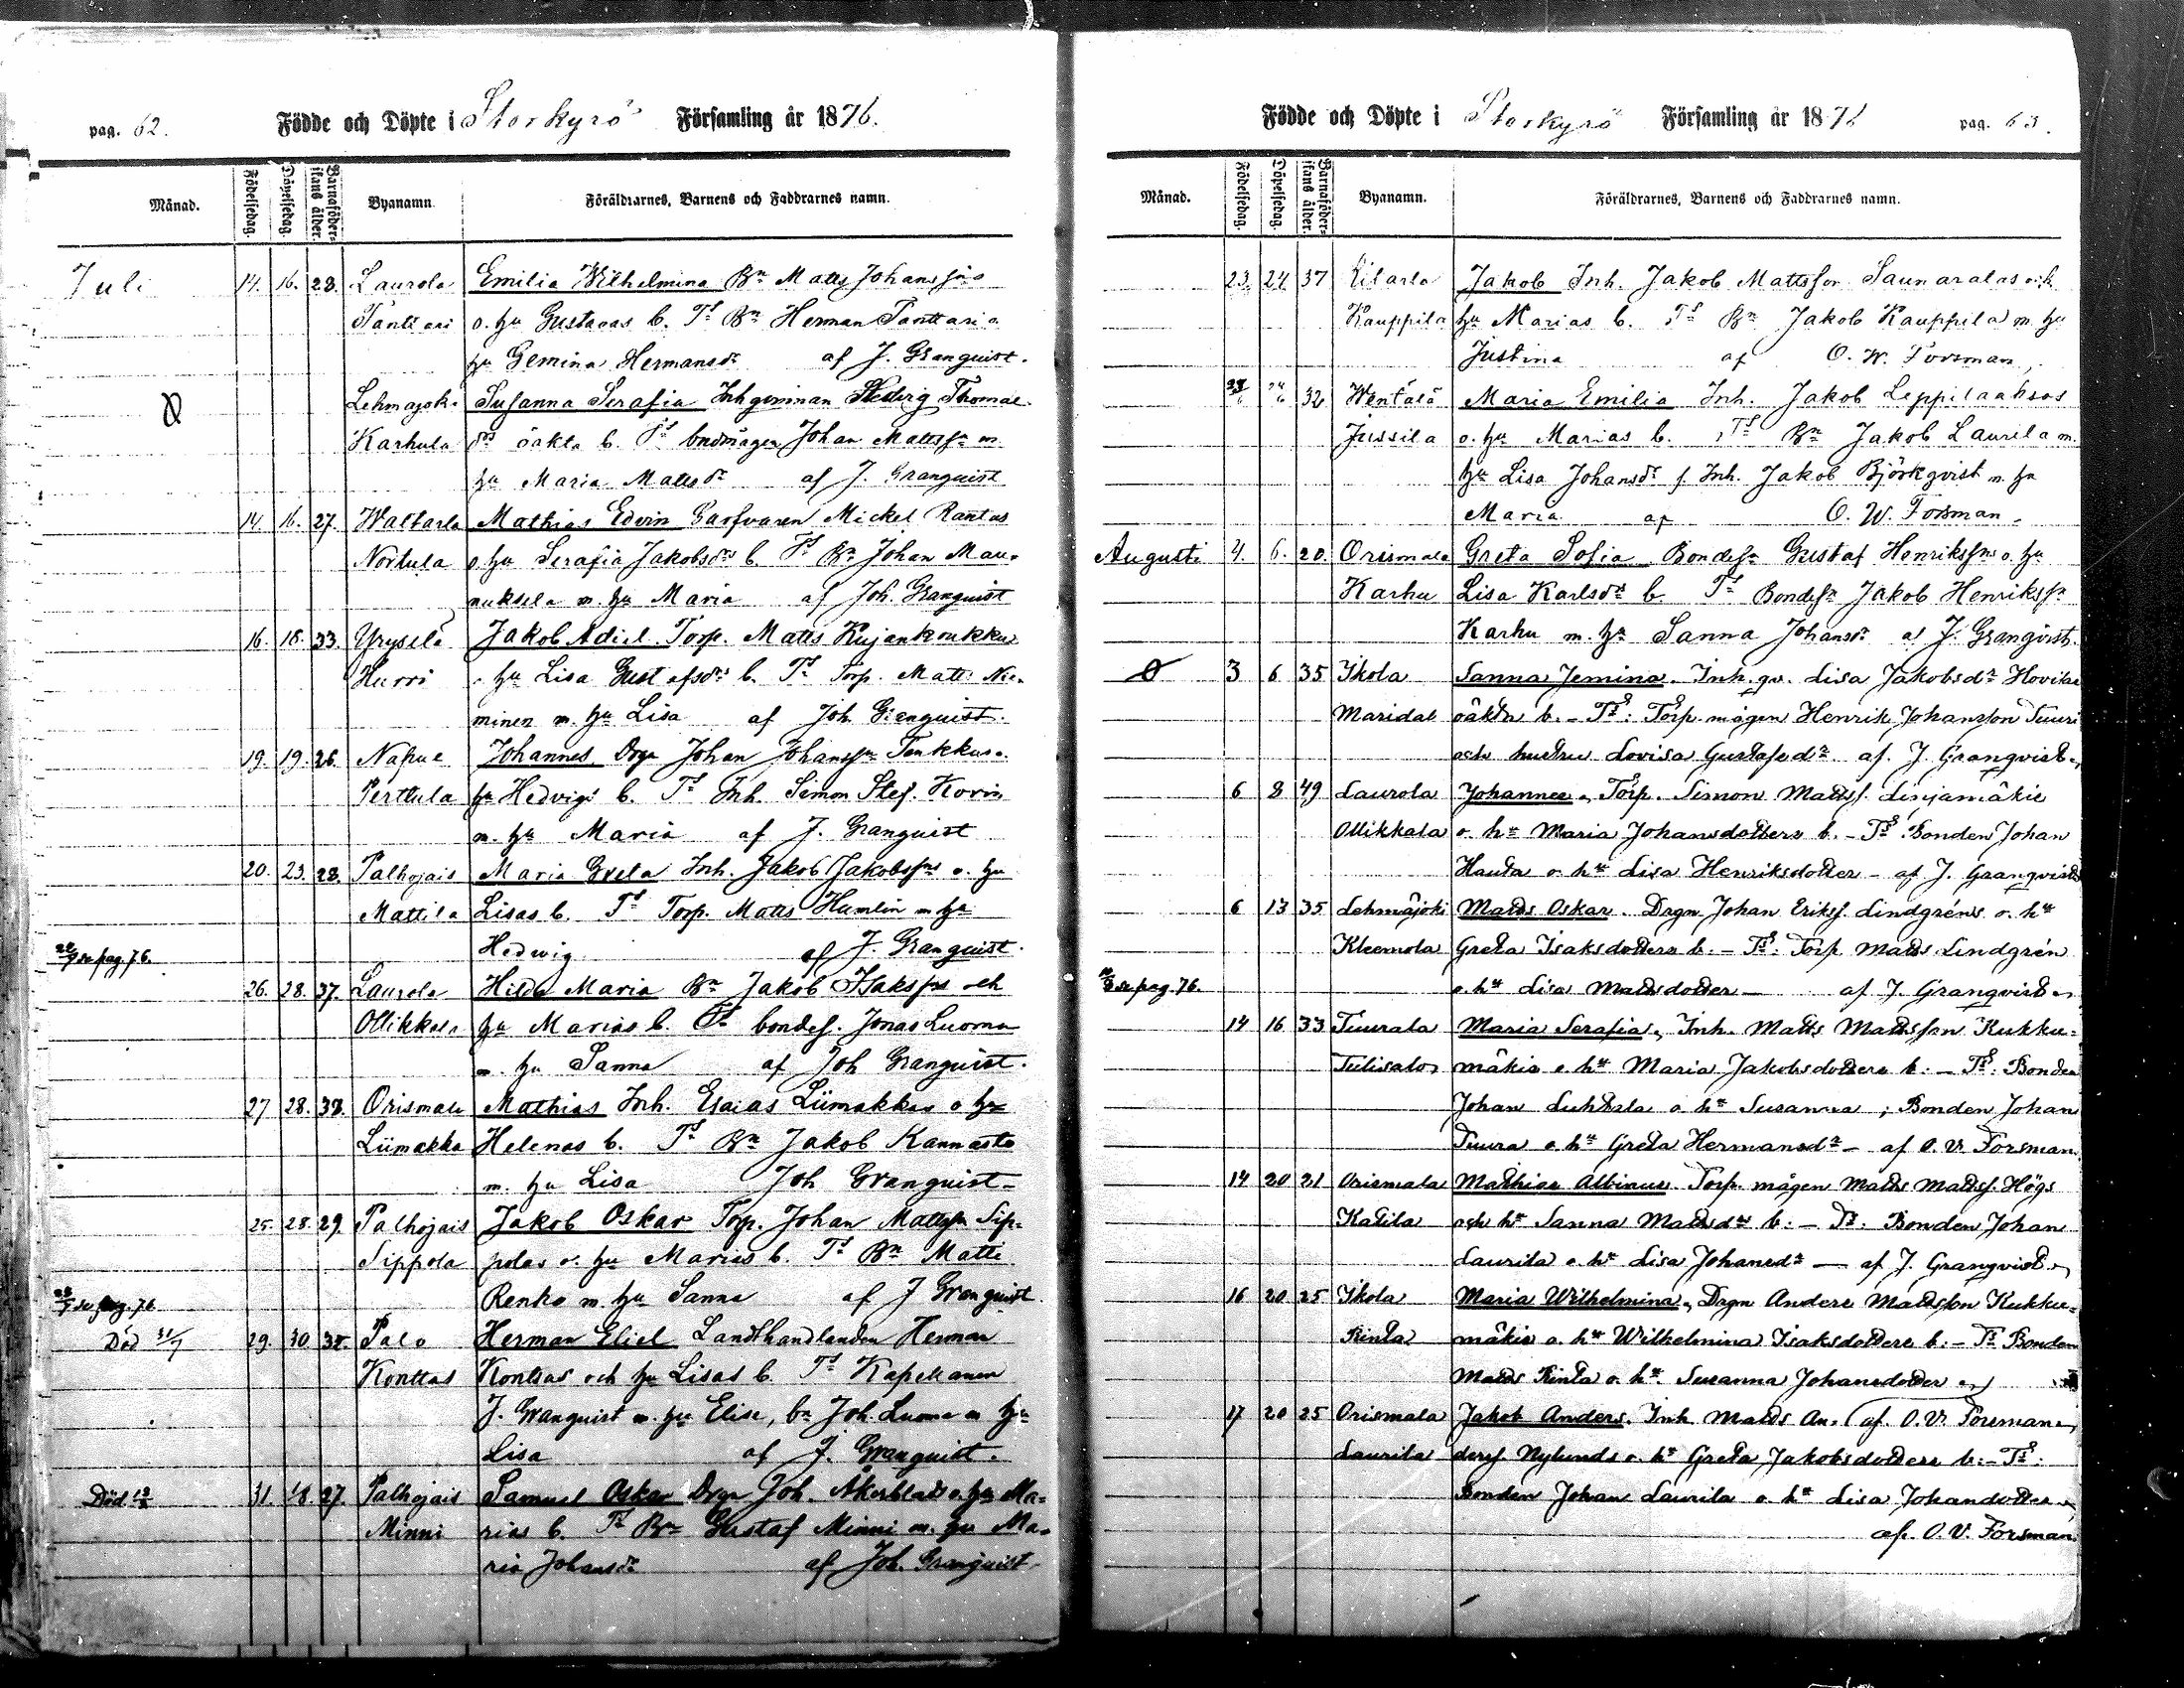 pag. 62. Födde och Döpte i Storkyrö Församling år 1876.
Månad. Födelsedag. Döpelsedag. Barnaföderskans ålder. Byanamn. Föräldrarnes, Barnens och Faddrarnes namn.
Juli 14. 16. 28. Laurola Emilia Wilhelmina Bn Matts Johanssons
Panttari o. hu Gustavas b. Ts Bn Herman Panttari o.
hu Gemina Hermansdr af J. Granquist.
Lehmajoki Susanna Serafia Inhqvinnan Hedvig Thomae
Karhula drs oäkta b. Ts bndmågen Johan Mattssn m.
hu Maria Mattsdr af J. Granquist
14. 16. 27. Waltarla Mathias Edvin Garfvaren Mickel Rantas
Nortula o. hu Serafia Jakobsdrs b. Ts Bn Johan Man=
nuksela m. hu Maria af Joh. Granquist
16. 18. 33. Yrysela Jakob Adiel Torp. Matts Kujankoukku
Hurri o hu Lisa Gustafsdrs b. Ts Torp. Matts Nie=
minen m. hu Lisa af Joh. Granquist.
19. 19. 26. Napue Johannes Drgn Johan Johanssn Tenkkus o.
Perttula hu Hedvigs b. Ts Inh. Simon Stef. Korin
m. hu Maria af J. Granquist
20. 23. 28. Palhojais Maria Greta Inh. Jakob Jakobssns o. hu
Mattila Lisas b. Ts Torp. Matts Humlin m hu
se pag. 76. Hedwig af J. Granquist.
26. 28. 37. Laurola Hilda Maria Bn Jakob Isakssns och
Ollikkala hu Marias b. Ts bondes. Jonas Luoma
m. hu Sanna af Joh Granquist.
27 28. 38. Orismala Mathias Inh. Esaias Liimakkas o hu
Liimakka Helenas b. Ts Bn Jakob Kannasto
m. hu Lisa Joh Granquist
25. 28. 29. Palhojais Jakob Oskar Torp. Johan Mattssn Sip=
Sippola polas o. hu Marias b. Ts Bn Matti
se pag. 76. Renko m. hu Sanna af J Granquist.
Död 31/7 29. 30. 38. Palo Herman Eliel Landthandlanden Herman
Konttas Konttas och hu Lisas b. Ts Kapellanen
J. Granquist m. hu Elise, bn Joh. Luoma m hu
Lisa af J. Granquist.
Död 31. 27. Palhojais Samuel Oskar Drgn Joh. Åkerblads o. hu Ma=
Minni rias b. Ts Bn Gustaf Minni m. hu Ma=
ria Johansdr af Joh. Granquist
Födde och Döpte i Storkyrö Församling år 1876 pag. 63.
Månad. Födelsedag. Döpelsedag. Barnaföderskans ålder. Byanamn. Föräldrarnes, Barnens och Faddrarnes namn.
23. 24 37 Kilarla Jakob Inh. Jakob Mattsson Saunaralas och
Kauppila hu Marias b. Ts Bn Jakob Kauppila m. hu
Justina af O. W. Forsman
32 Wentälä Maria Emilia Inh. Jakob Leppilaaksos
Jussila o. hu Marias b. Ts Bn Jakob Laurila m.
hu Lisa Johansdr f. Inh. Jakob Björkqvist m. hu
Maria af O. W. Forsman
Augusti 4. 6. 20. Orismala Greta Sofia Bondesn Gustaf Henrikssns o. hu
Karhu Lisa Karlsdrs b. Ts Bondesn Jakob Henrikssn
Karhu m. hu Sanna Johansdr af J. Granqvist.
3 6 35 Ikola Sanna Jemina. Inh. qv. Lisa Jakobsdr Hovilas
Maridal oäkta b. – Ts: Torp. mågen Henrik Johansson Tuuri
och hustru Lovisa Gustafsdr af. J. Granqvist.
6 8 49 Laurola Johannes, Torp. Simon Mattss. Linjamäkis
Ollikkala o. hu Maria Johansdotters b. – Ts Bonden Johan
Hauta o. hu Lisa Henriksdotter – af J. Granqvist
6 13 35 Lehmäjoki Matts Oskar. Dragn. Johan Erikss. Lindgréns o. hu
Kleemola Greta Isaksdotters b. – Ts: Torp Matts Lindgrén
se pag. 76. o. hu Lisa Mattsdotter – af J. Granqvist
14 16 33 Tuurala Maria Serafia, Inh. Matts Mattsson Kukku=
Tulisalo mäkis o. hu Maria Jakobsdotters b. – Ts: Bonden
Johan Luhtala o. hu Susanna; Bonden Johan
Tuura o. hu Greta Hermansdr – af O. V. Forsman.
14 20 21 Orismala Mathias Albinus Torp. mågen Matts Mattss. Högs
Katila och hu Sanna Mattsdrs b. – Ts: Bonden Johan
Laurila o. hu Lisa Johansdr — af J. Granqvist.
16 20 25 Ikola Maria Wilhelmina, Dragn Anders Mattsson Kukku=
Rinta mäkis o. hu Wilhelmina Isaksdotters b. – Ts Bonden
Matts Rinta o. hu Susanna Johansdotter
17 20 25 Orismala Jakob Anders. Inh Matts An= af. O. V. Forsman
Laurila derss. Nylunds o. hu Greta Jakobsdotters b. – Ts:
Bonden Johan Laurila o. hu Lisa Johansdotter
af. O. V. Forsman